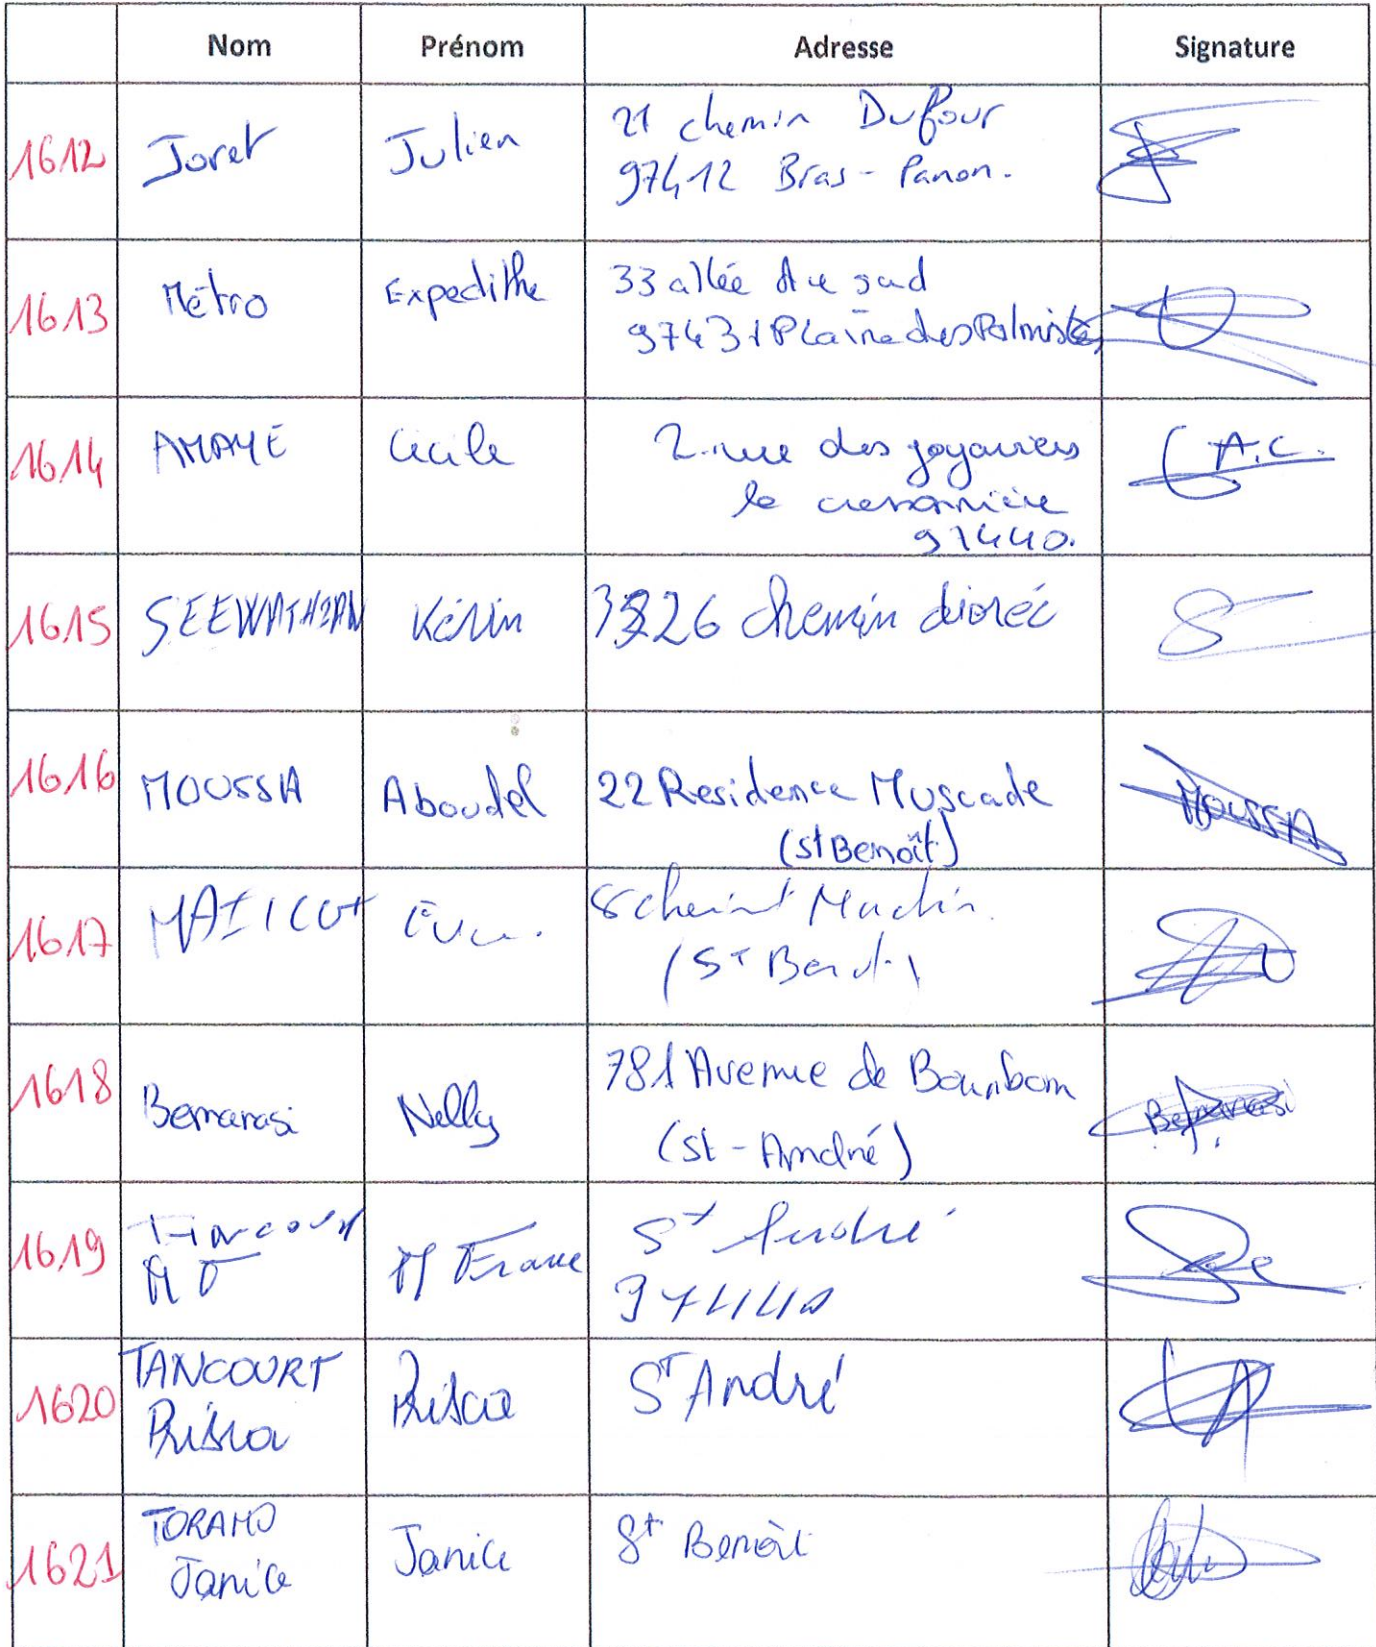 Nom Prénom Adresse Signature
1612 Joret Julien 21 chemin Dufour
97412 Bras-Panon.
1613 Métro Expedithe 33 allée du sud
97431 Plaine des Palmistes
1614 AMAYE Cécile 2 rue des goyaviers
la cressonnière
97440.
A.C.
1615 SEEWATHIAN Kévin 26 chemin dioré
1616 MOUSSA Aboudel 22 Residence Muscade
(st Benoît)
MOUSSA
1617
(ST Benoit)
1618 Bemarasi Nelly 781 Avenue de Bourbon
(st-André)
Bemarasi
1619 M France St André
97440
1620 TANCOURT Prisca ST André
Prisca
1621 TORAMO Janice St Benoit
Janice